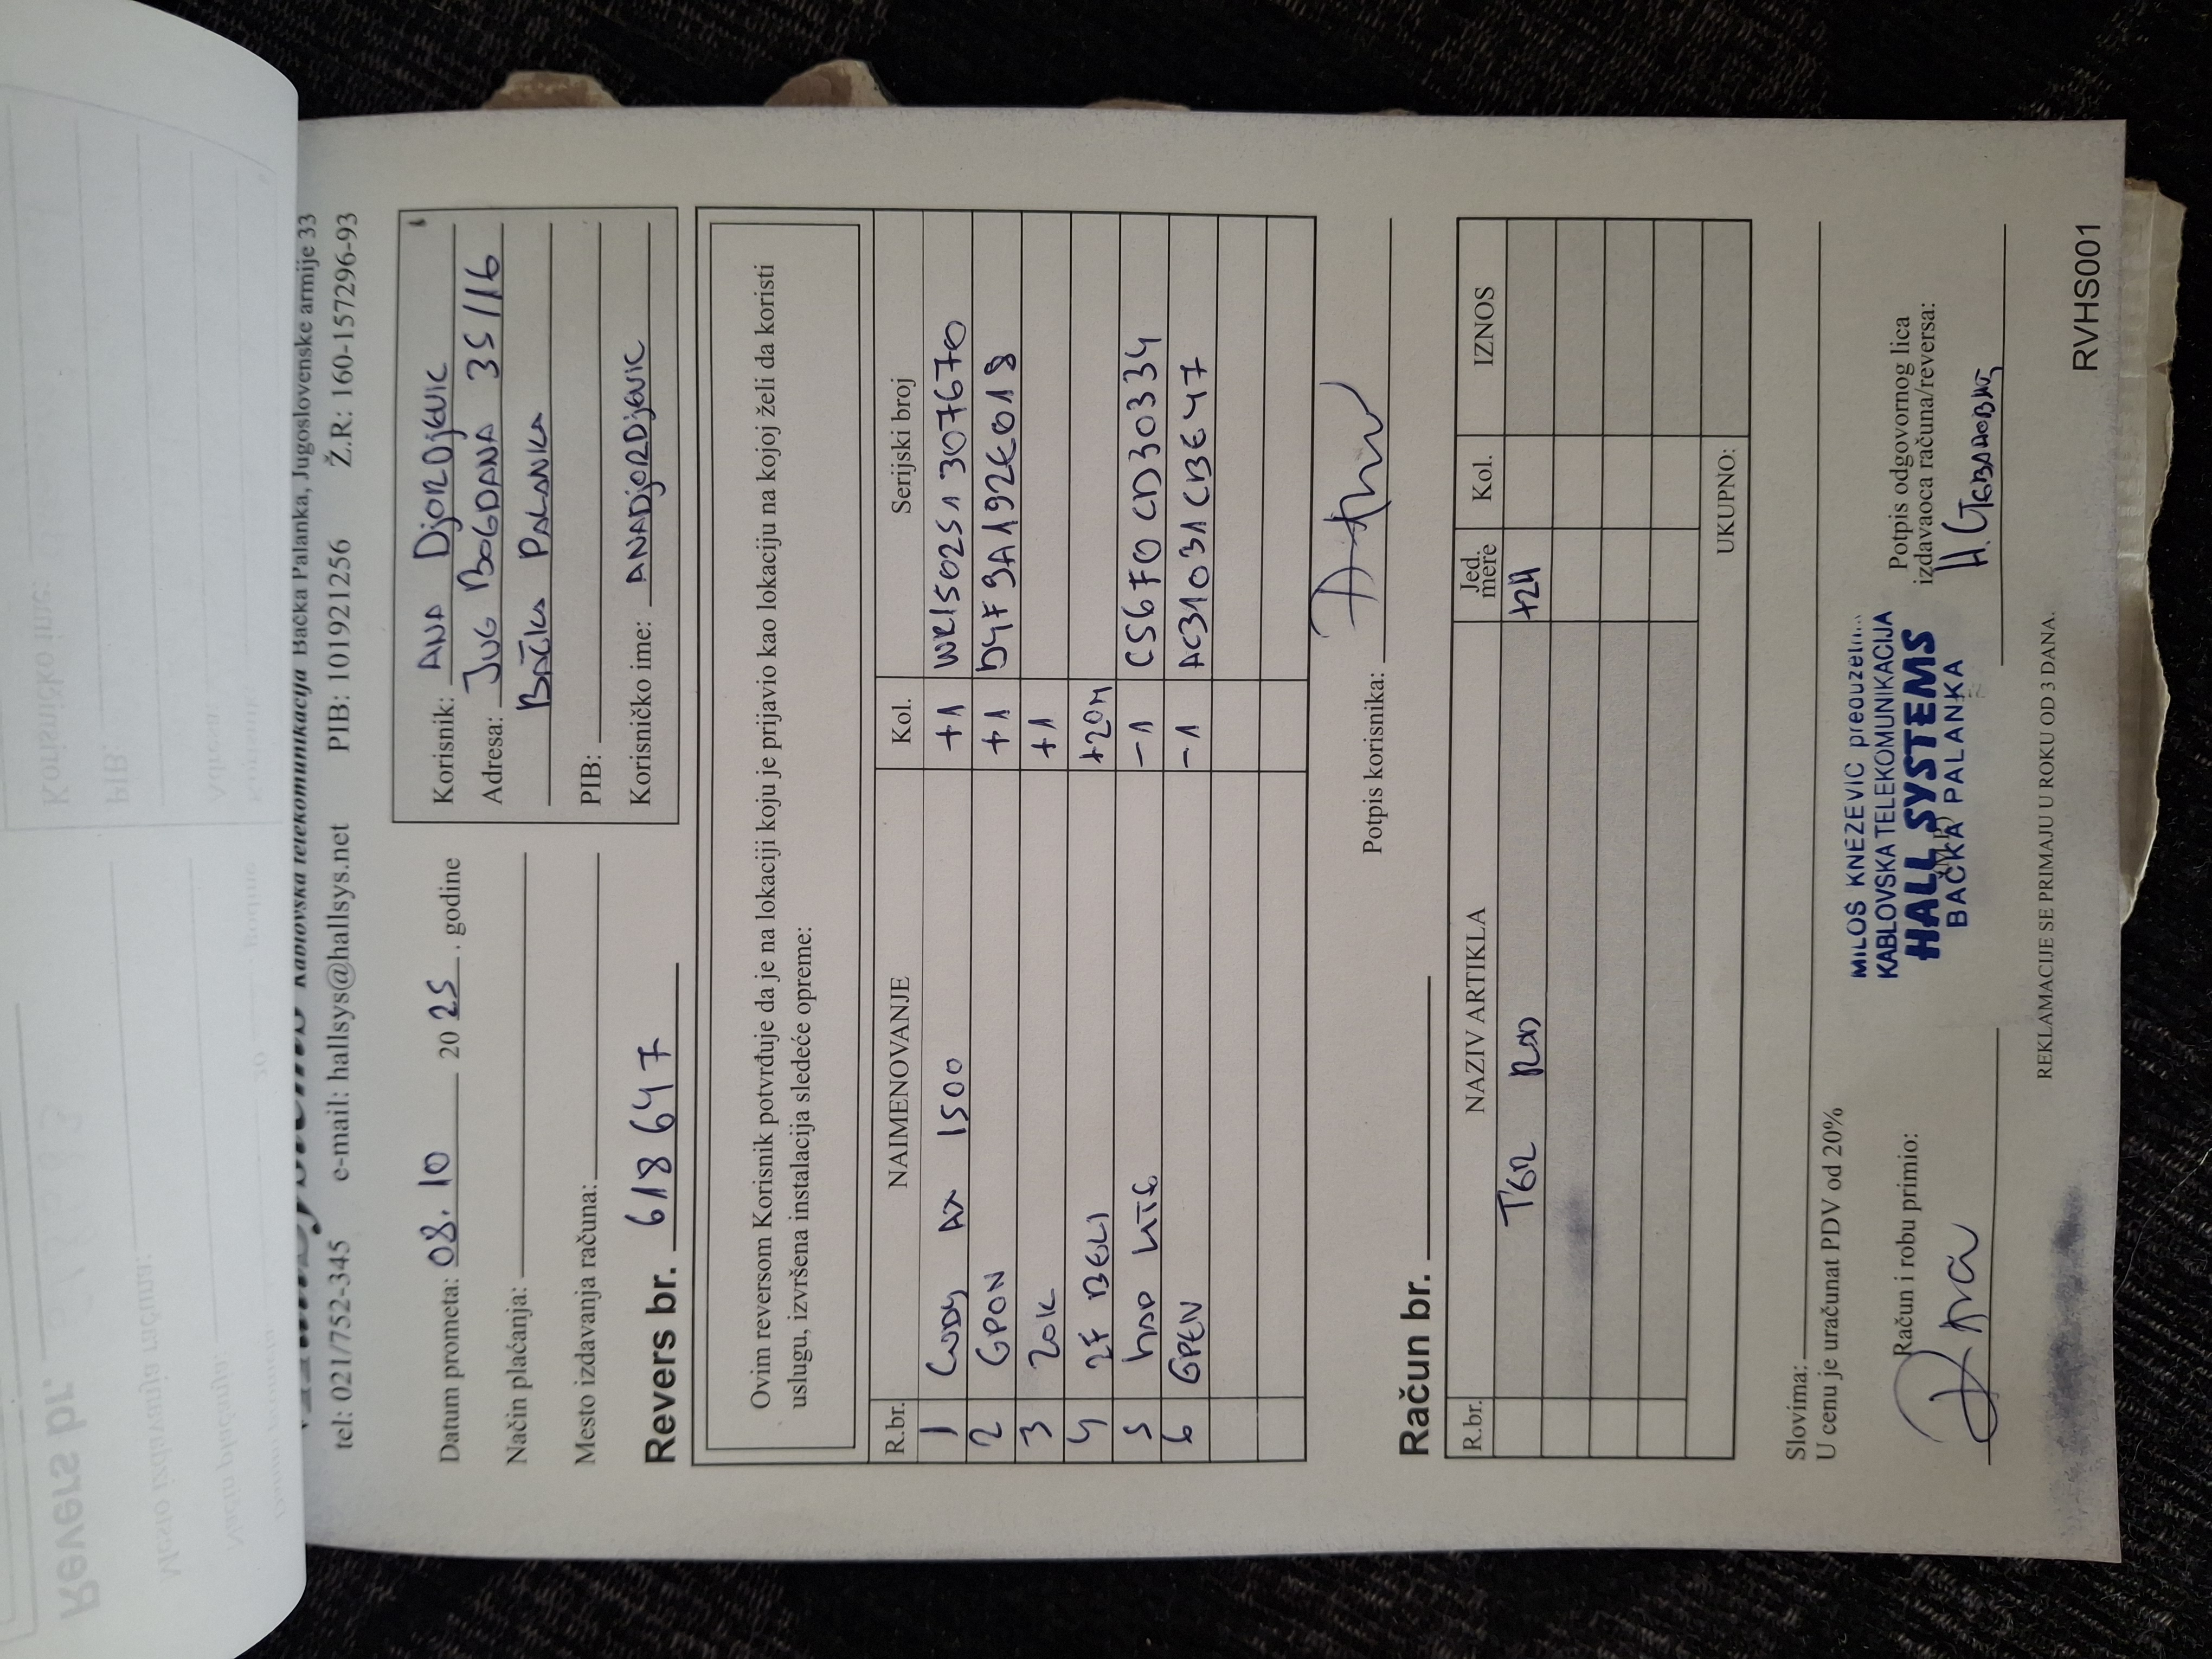 Kablovska telekomunikacija Bačka Palanka, Jugoslovenske armije 33
tel: 021/752-345 e-mail: hallsys@hallsys.net PIB: 101921256 Ž.R.: 160-157296-93
Datum prometa: 08.10 2025. godine
Način plaćanja:
Mesto izdavanja računa:
Revers br. 618647
Korisnik: ANA DjORDjEVIC
Adresa: JUG BOGDANA 35/16
BAČKA PALANKA
PIB:
Korisničko ime: ANADjORDjEVIC
Ovim reversom Korisnik potvrđuje da je na lokaciji koju je prijavio kao lokaciju na kojoj želi da koristi
uslugu, izvršena instalacija sledeće opreme:
R.br. NAIMENOVANJE Kol. Serijski broj
1 CUDY AX 1500 +1 WR150251307670
2 GPON +1 D4F9A192E018
3 ZOK +1
4 2F BELI +20M
5 hAP LITE -1 C56F0CD30334
6 GPEN -1 AC31031CBE47
Potpis korisnika:
Račun br.
R.br. NAZIV ARTIKLA Jed. mere Kol. IZNOS
UKUPNO:
Slovima:
U cenu je uračunat PDV od 20%
Račun i robu primio:
MILOŠ KNEZEVIC preduzetnik
KABLOVSKA TELEKOMUNIKACIJA
HALL SYSTEMS
BAČKA PALANKA
Potpis odgovornog lica
izdavaoca računa/reversa:
REKLAMACIJE SE PRIMAJU U ROKU OD 3 DANA.
RVHS001